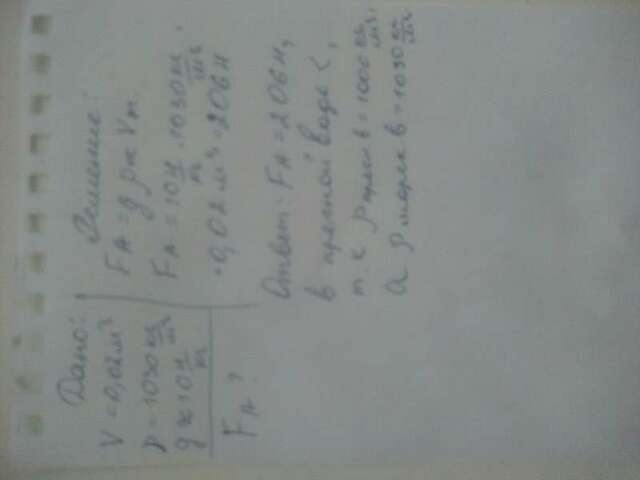 Дано:
V = 0,02 м³
ρ = 1030 кг/м³
g ≈ 10 Н/
F_A ?
Решение:
F_A = g ρж Vт
F_A = 10 Н/ · 1030 кг/м³ ·
· 0,02 м³ = 206 Н
Ответ: F_A = 206 Н,
в пресной воде <,
т.к ρ пресн в = 1000 кг/м³,
а ρ морск в = 1030 кг/м³